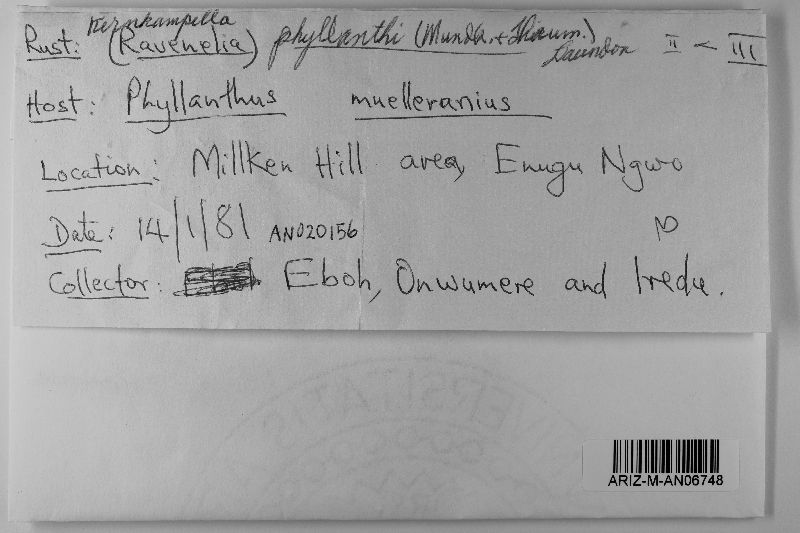 Kernkampella
Rust: (Ravenelia) phyllanthi (Munda. + Thirum.) Laundon II < III
Host: Phyllanthus muelleranius
Location: Millken Hill area, Enugu Ngwo
Date: 14/1/81 AN020156
Collector: Eboh, Onwumere and Iredu.
VERSITATIS
ARIZ-M-AN06748